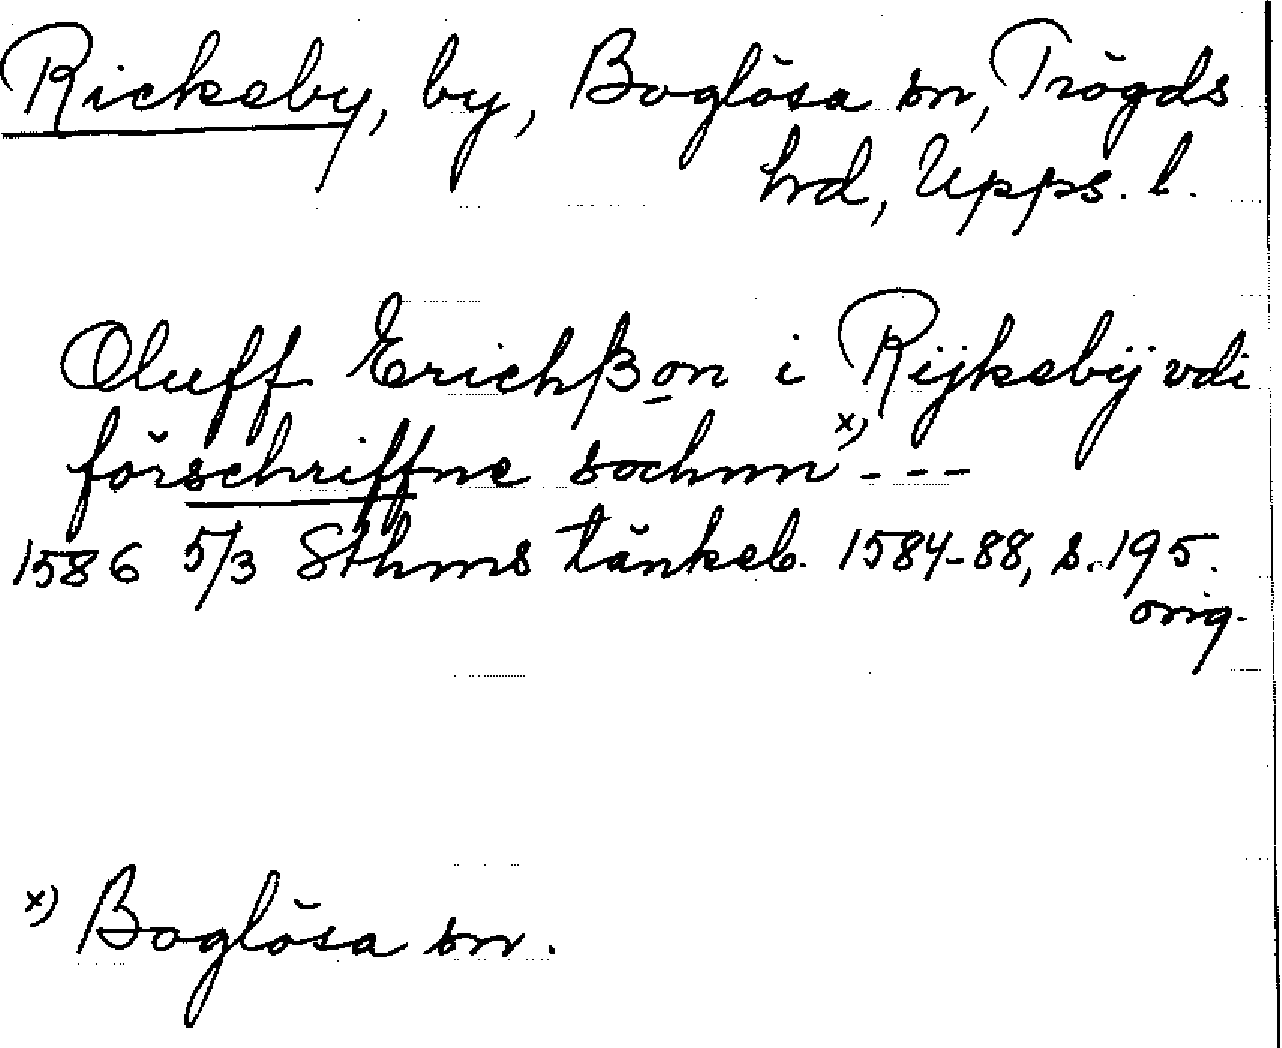 Rickeby, by, Boglösa sn, Trögds
hrd, Upps. l.
Oluff Erichßon i Rijkebÿ vdi
förschriffne sochnn x) ---
1586 5/3 Sthms tänkeb. 1584-88, s. 195.
orig.
x) Boglösa sn.